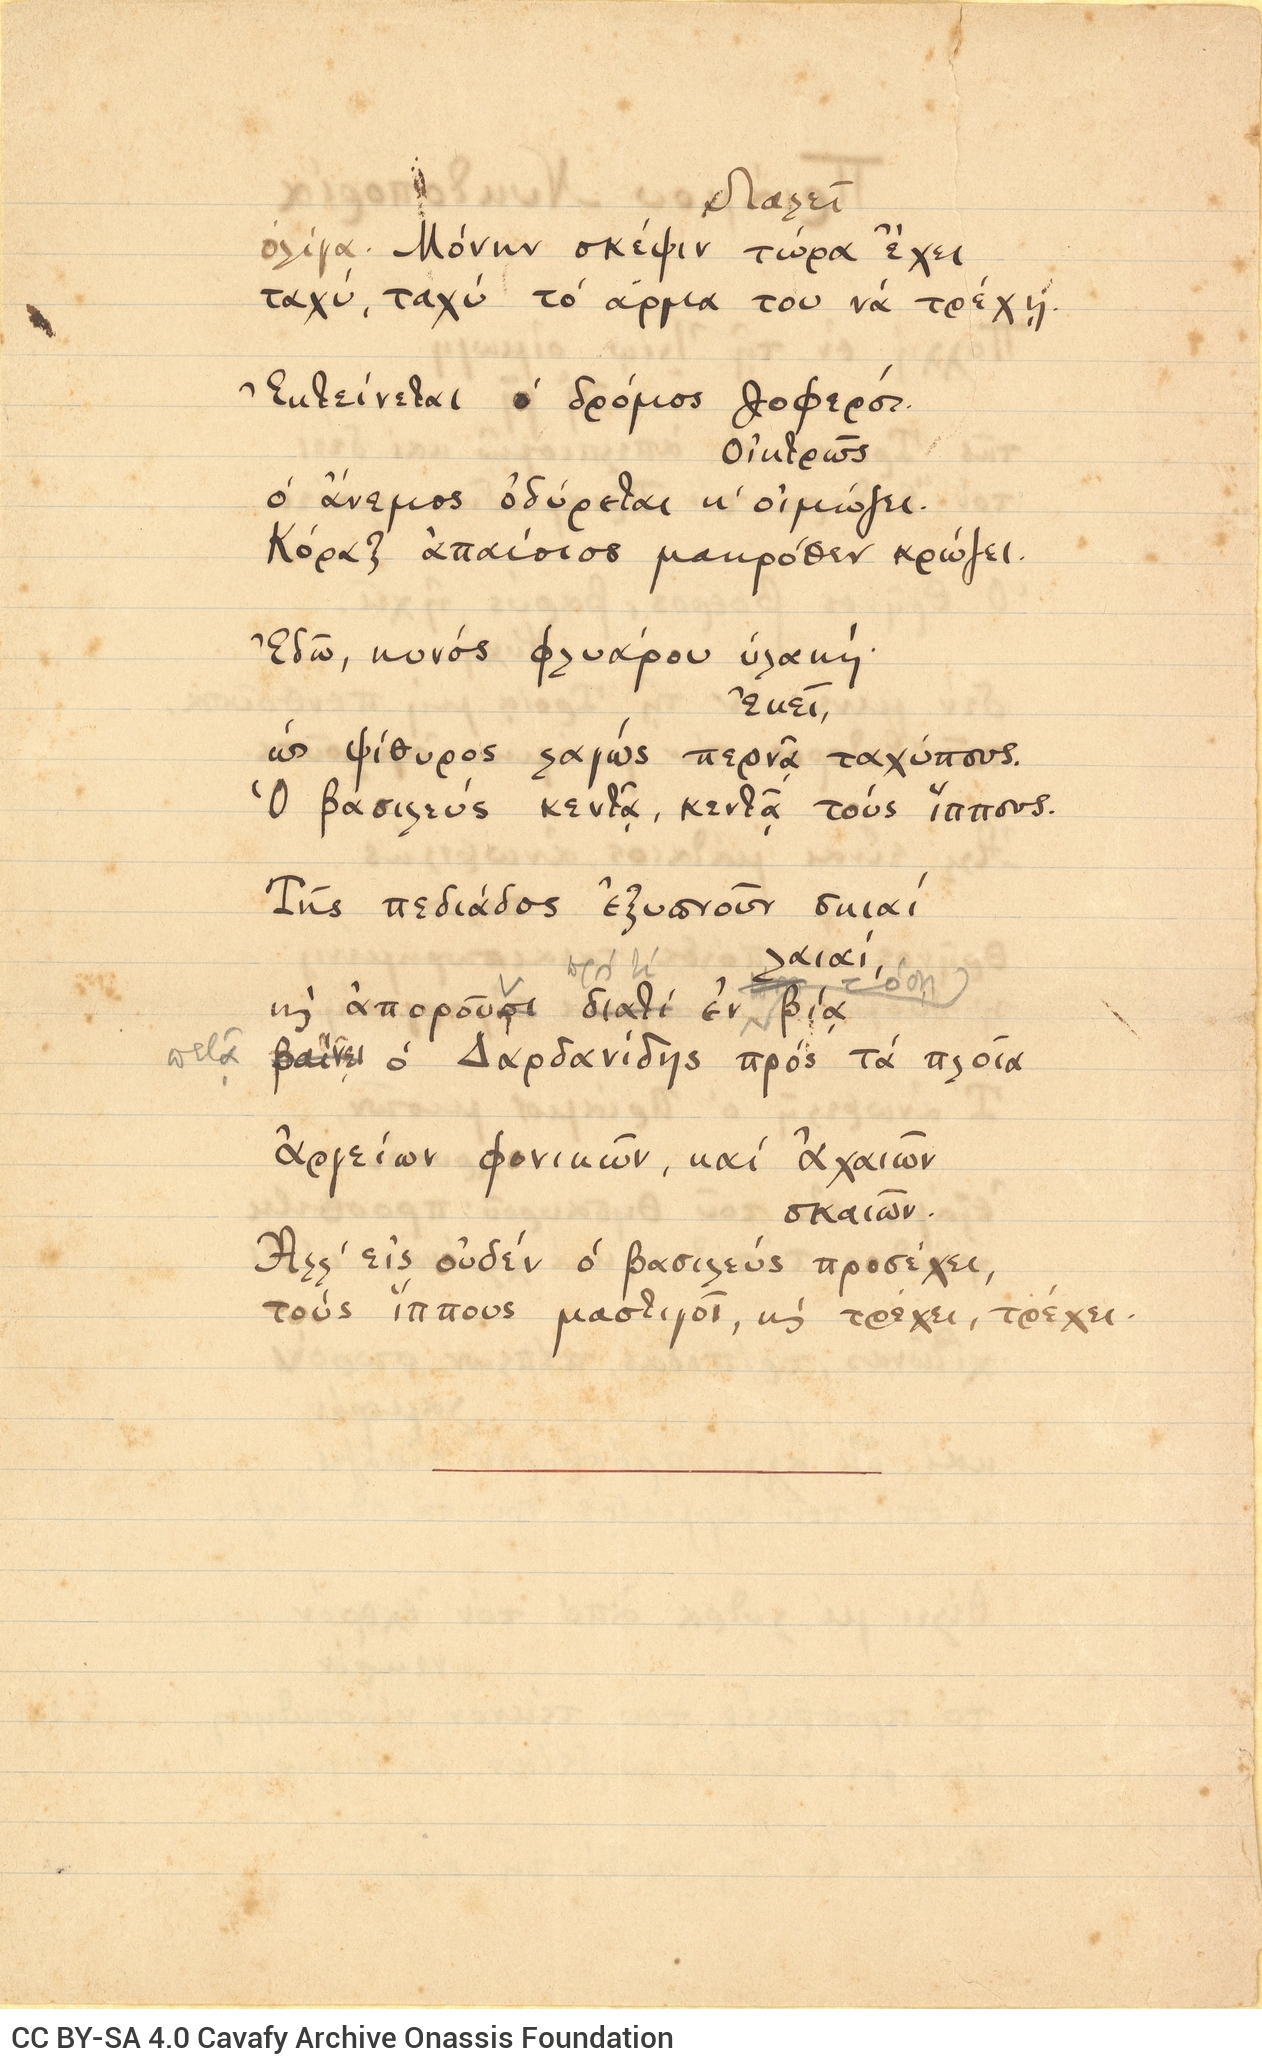 Λαλεῖ
ὀλίγα. Μόνην σκέψιν τώρα ἔχει
ταχύ, ταχύ τό ἅρμα του νά τρέχῃ.
Ἐκτείνεται ὁ δρόμος ζοφερός.
Οἰκτρῶς
ὁ ἄνεμος ὀδύρεται κ' οἰμώζει.
Κόραξ ἀπαίσιος μακρόθεν κρώζει.
Ἐδῶ, κυνός φλυάρου ὑλακή·
Ἐκεῖ,
ὡς ψίθυρος λαγώς περνᾷ ταχύπους.
Ὁ βασιλεύς κεντᾷ, κεντᾷ τούς ἵππους.
Τῆς πεδιάδος ἐξυπνοῦν σκιαί
λαιαί,
πρός τί τόσῃ
κι ἀποροῦσι διατί ἐν βίᾳ
πετᾷ βαίνει ὁ Δαρδανίδης πρός τά πλοῖα
Ἀργείων φονικῶν, καί Ἀχαιῶν
σκαιῶν.
Ἀλλ' εἰς οὐδέν ὁ βασιλεύς προσέχει,
τούς ἵππους μαστιγοῖ, κι τρέχει, τρέχει.
CC BY-SA 4.0 Cavafy Archive Onassis Foundation